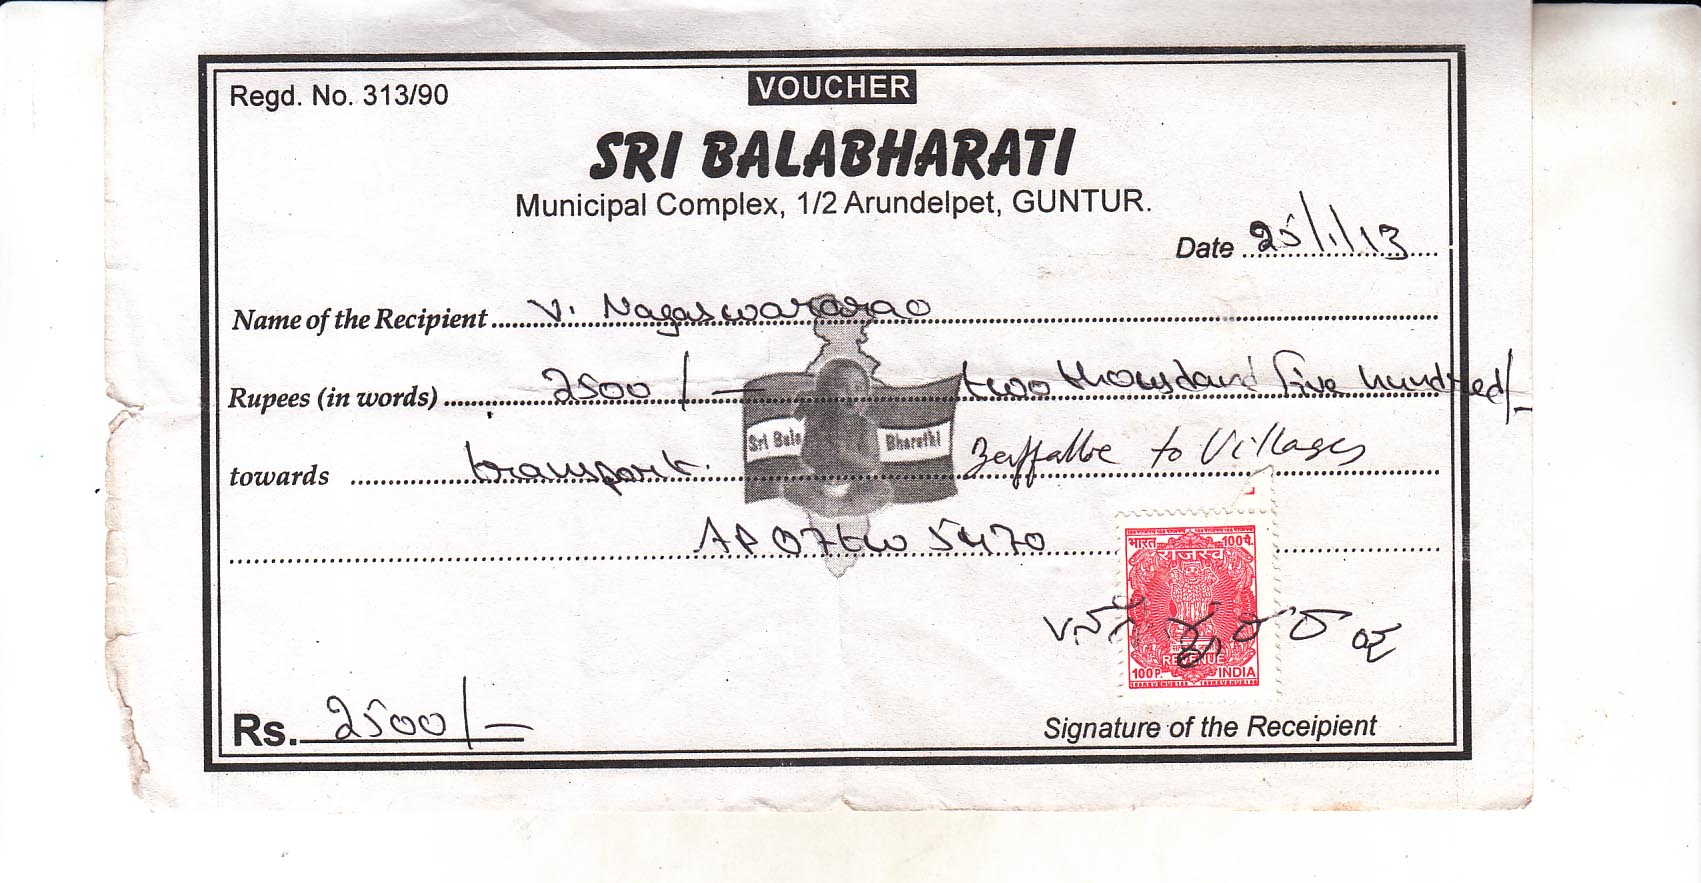 VOUCHER
Regd. No. 313/90
SRI BALABHARATI
Municipal Complex, 1/2 Arundelpet, GUNTUR.
Date 25/1/13
Name of the Recipient V. Nagaswararao
Rupees (in words) 2500/- two thousand five hundred/-
Sri Bala Bharathi
towards transport. to Villages
AP 07 5470
भारत 100पै.
राजस्व
REVENUE
100P. INDIA
Rs. 2500/-
Signature of the Receipient